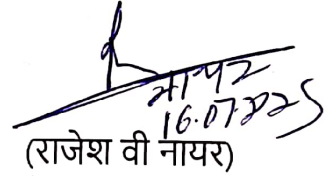 नायर
16.07.2025
(राजेश वी नायर)